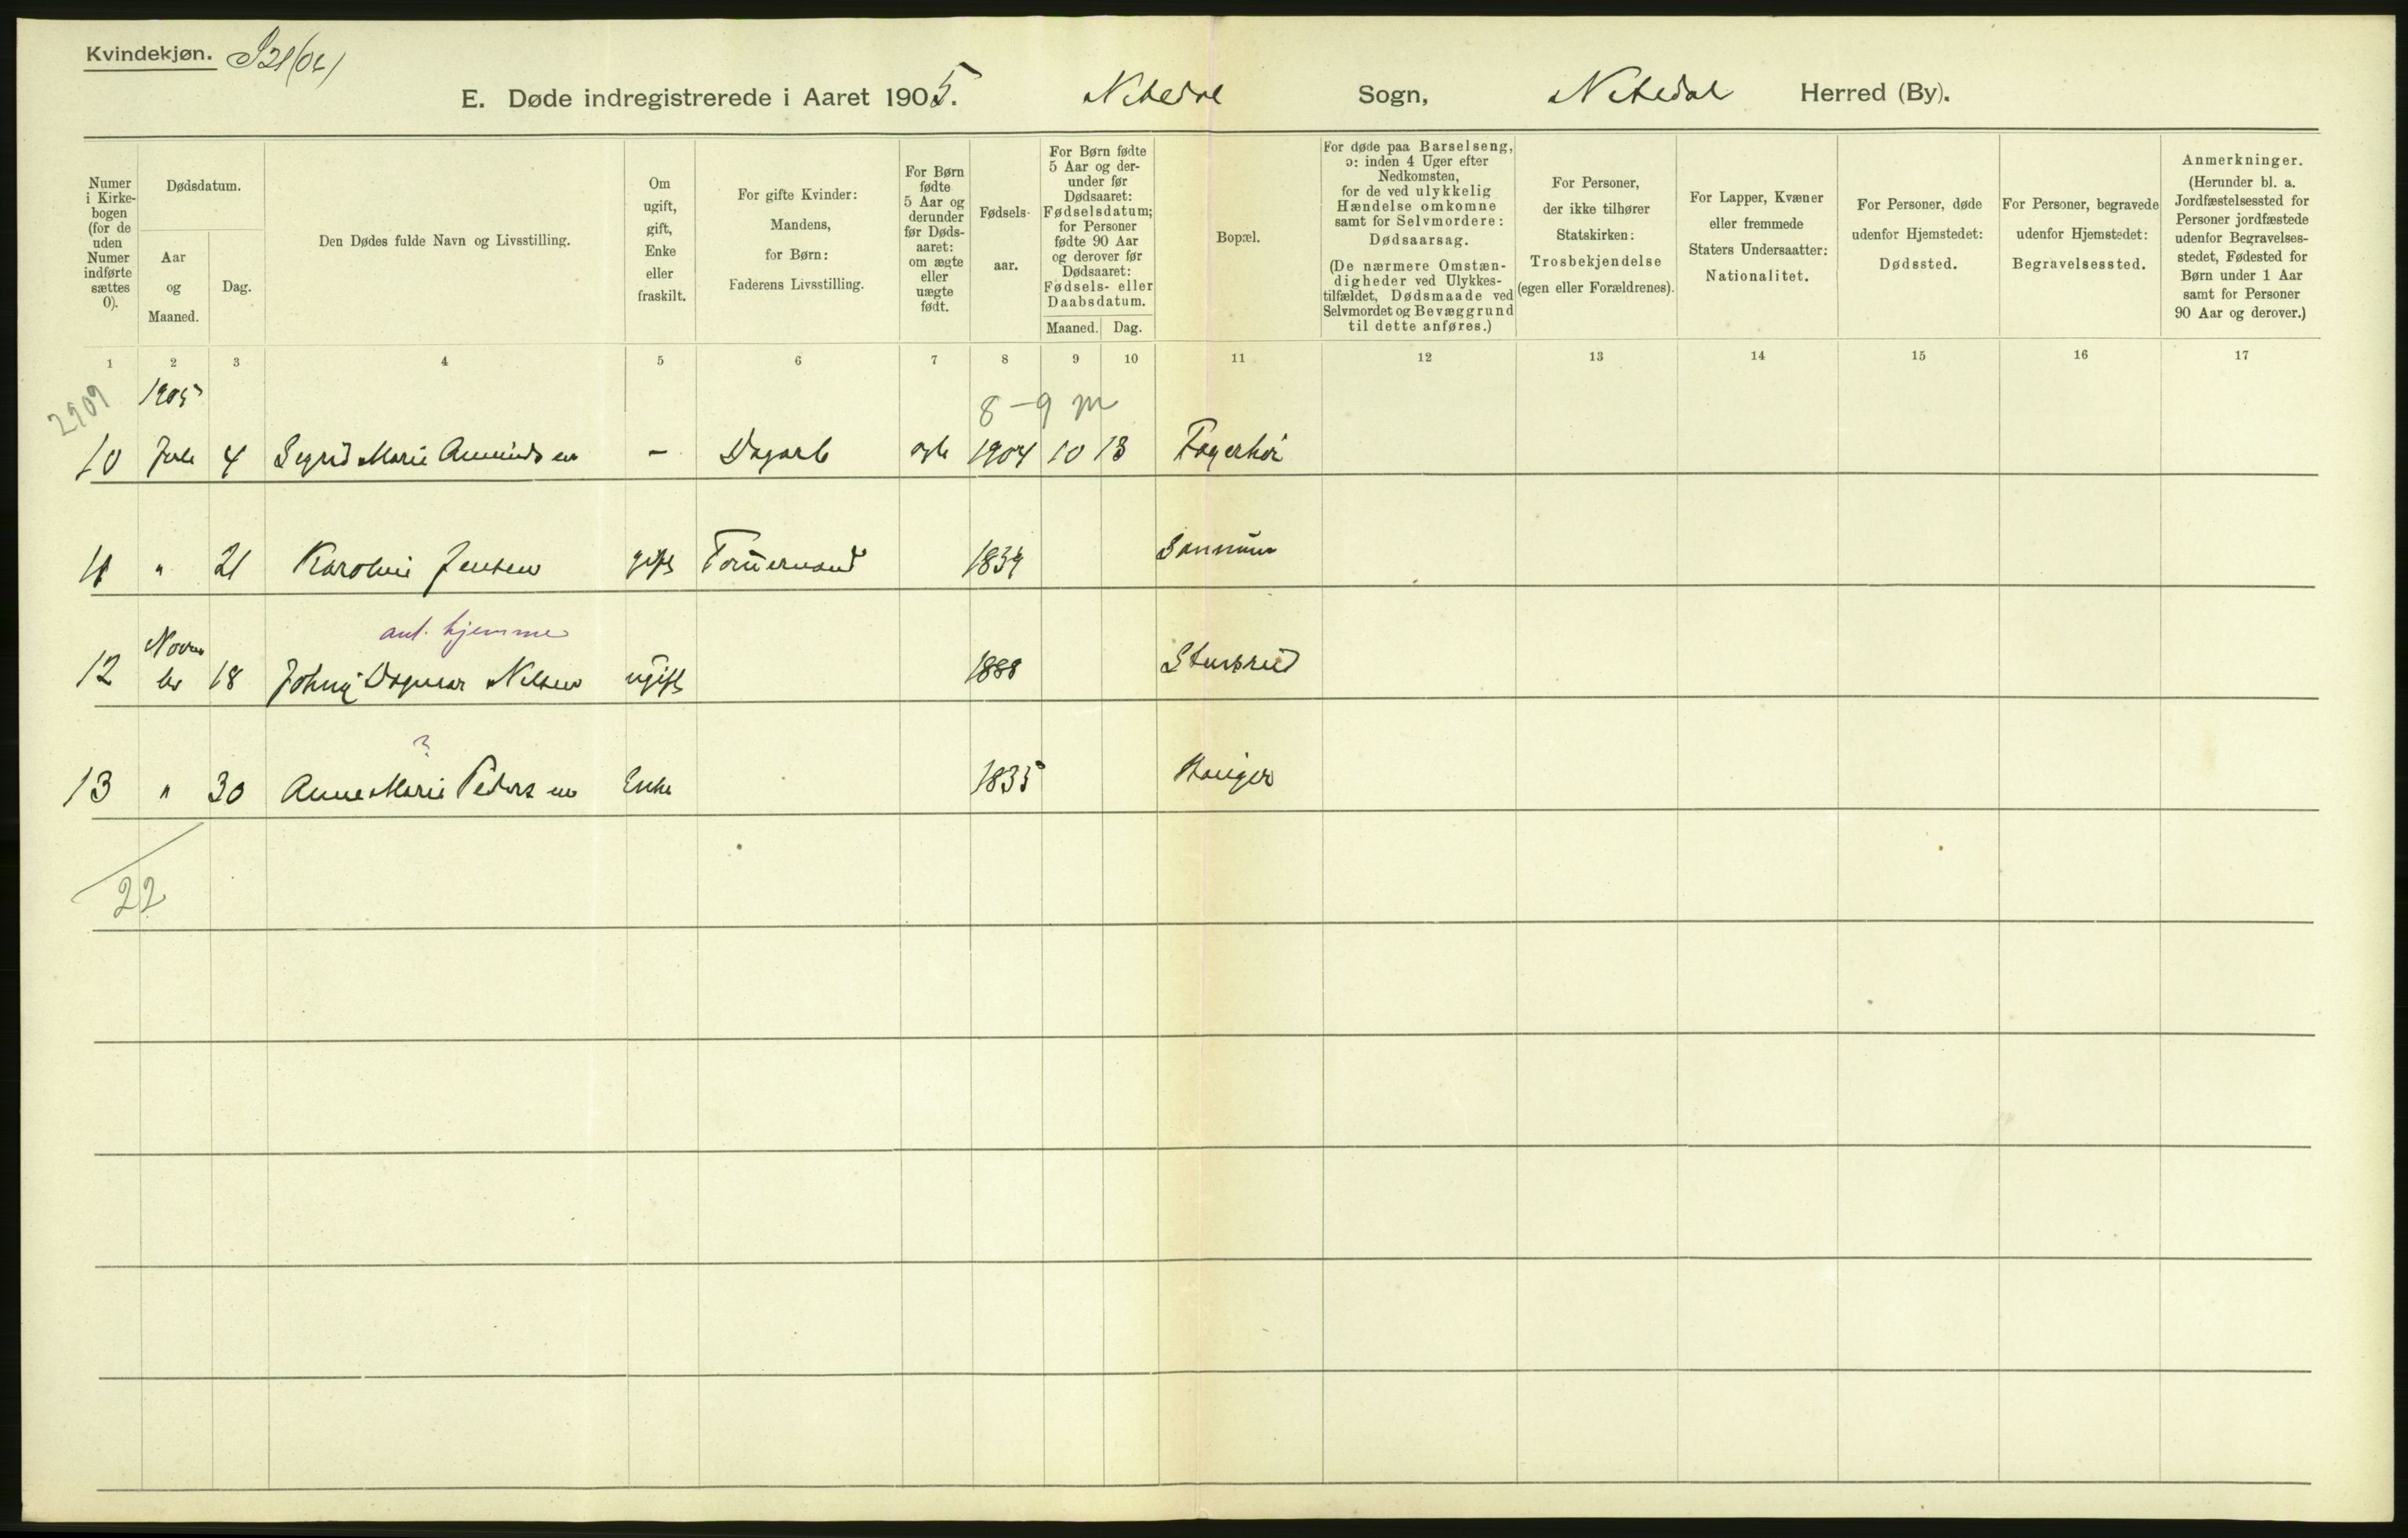 Kvindekjøn.
E. Døde indregistrerede i Aaret 1905. Nitedal Sogn, Nitedal Herred (By).
Numer i Kirkebogen (for de uden Numer indførte sættes 0).
Dødsdatum.
Aar og Maaned.
Dag.
Den Dødes fulde Navn og Livsstilling.
Om ugift, gift, Enke eller fraskilt.
For gifte Kvinder: Mandens, for Børn: Faderens Livsstilling.
For Børn fødte 5 Aar og derunder før Dødsaaret: om ægte eller uægte født.
Fødselsaar.
For Børn fødte 5 Aar og derunder før Dødsaaret: Fødselsdatum; for Personer fødte 90 Aar og derover før Dødsaaret: Fødsels- eller Daabsdatum.
Maaned. Dag.
Bopæl.
For døde paa Barselseng, ɔ: inden 4 Uger efter Nedkomsten, for de ved ulykkelig Hændelse omkomne samt for Selvmordere: Dødsaarsag. (De nærmere Omstændigheder ved Ulykkestilfældet, Dødsmaade ved Selvmordet og Bevæggrund til dette anføres.)
For Personer, der ikke tilhører Statskirken: Trosbekjendelse (egen eller Forældrenes).
For Lapper, Kvæner eller fremmede Staters Undersaatter: Nationalitet.
For Personer, døde udenfor Hjemstedet: Dødssted.
For Personer, begravede udenfor Hjemstedet: Begravelsessted.
Anmerkninger. (Herunder bl. a. Jordfæstelsessted for Personer jordfæstede udenfor Begravelsesstedet, Fødested for Børn under 1 Aar samt for Personer 90 Aar og derover.)
1 2 3 4 5 6 7 8 9 10 11 12 13 14 15 16 17
2909 1905 8-9 m
10 Juli 4 Sigrid Marie Amundsen - Dagarb ægte 1904 10 13 Fagerhøi
11 " 21 Karoline Jensen gift 1839
ant. hjemme
12 Novembr 18 Dagmar Nilsen ugift 1888
?
13 " 30 Anne Marie Pedersen Enke 1835
22